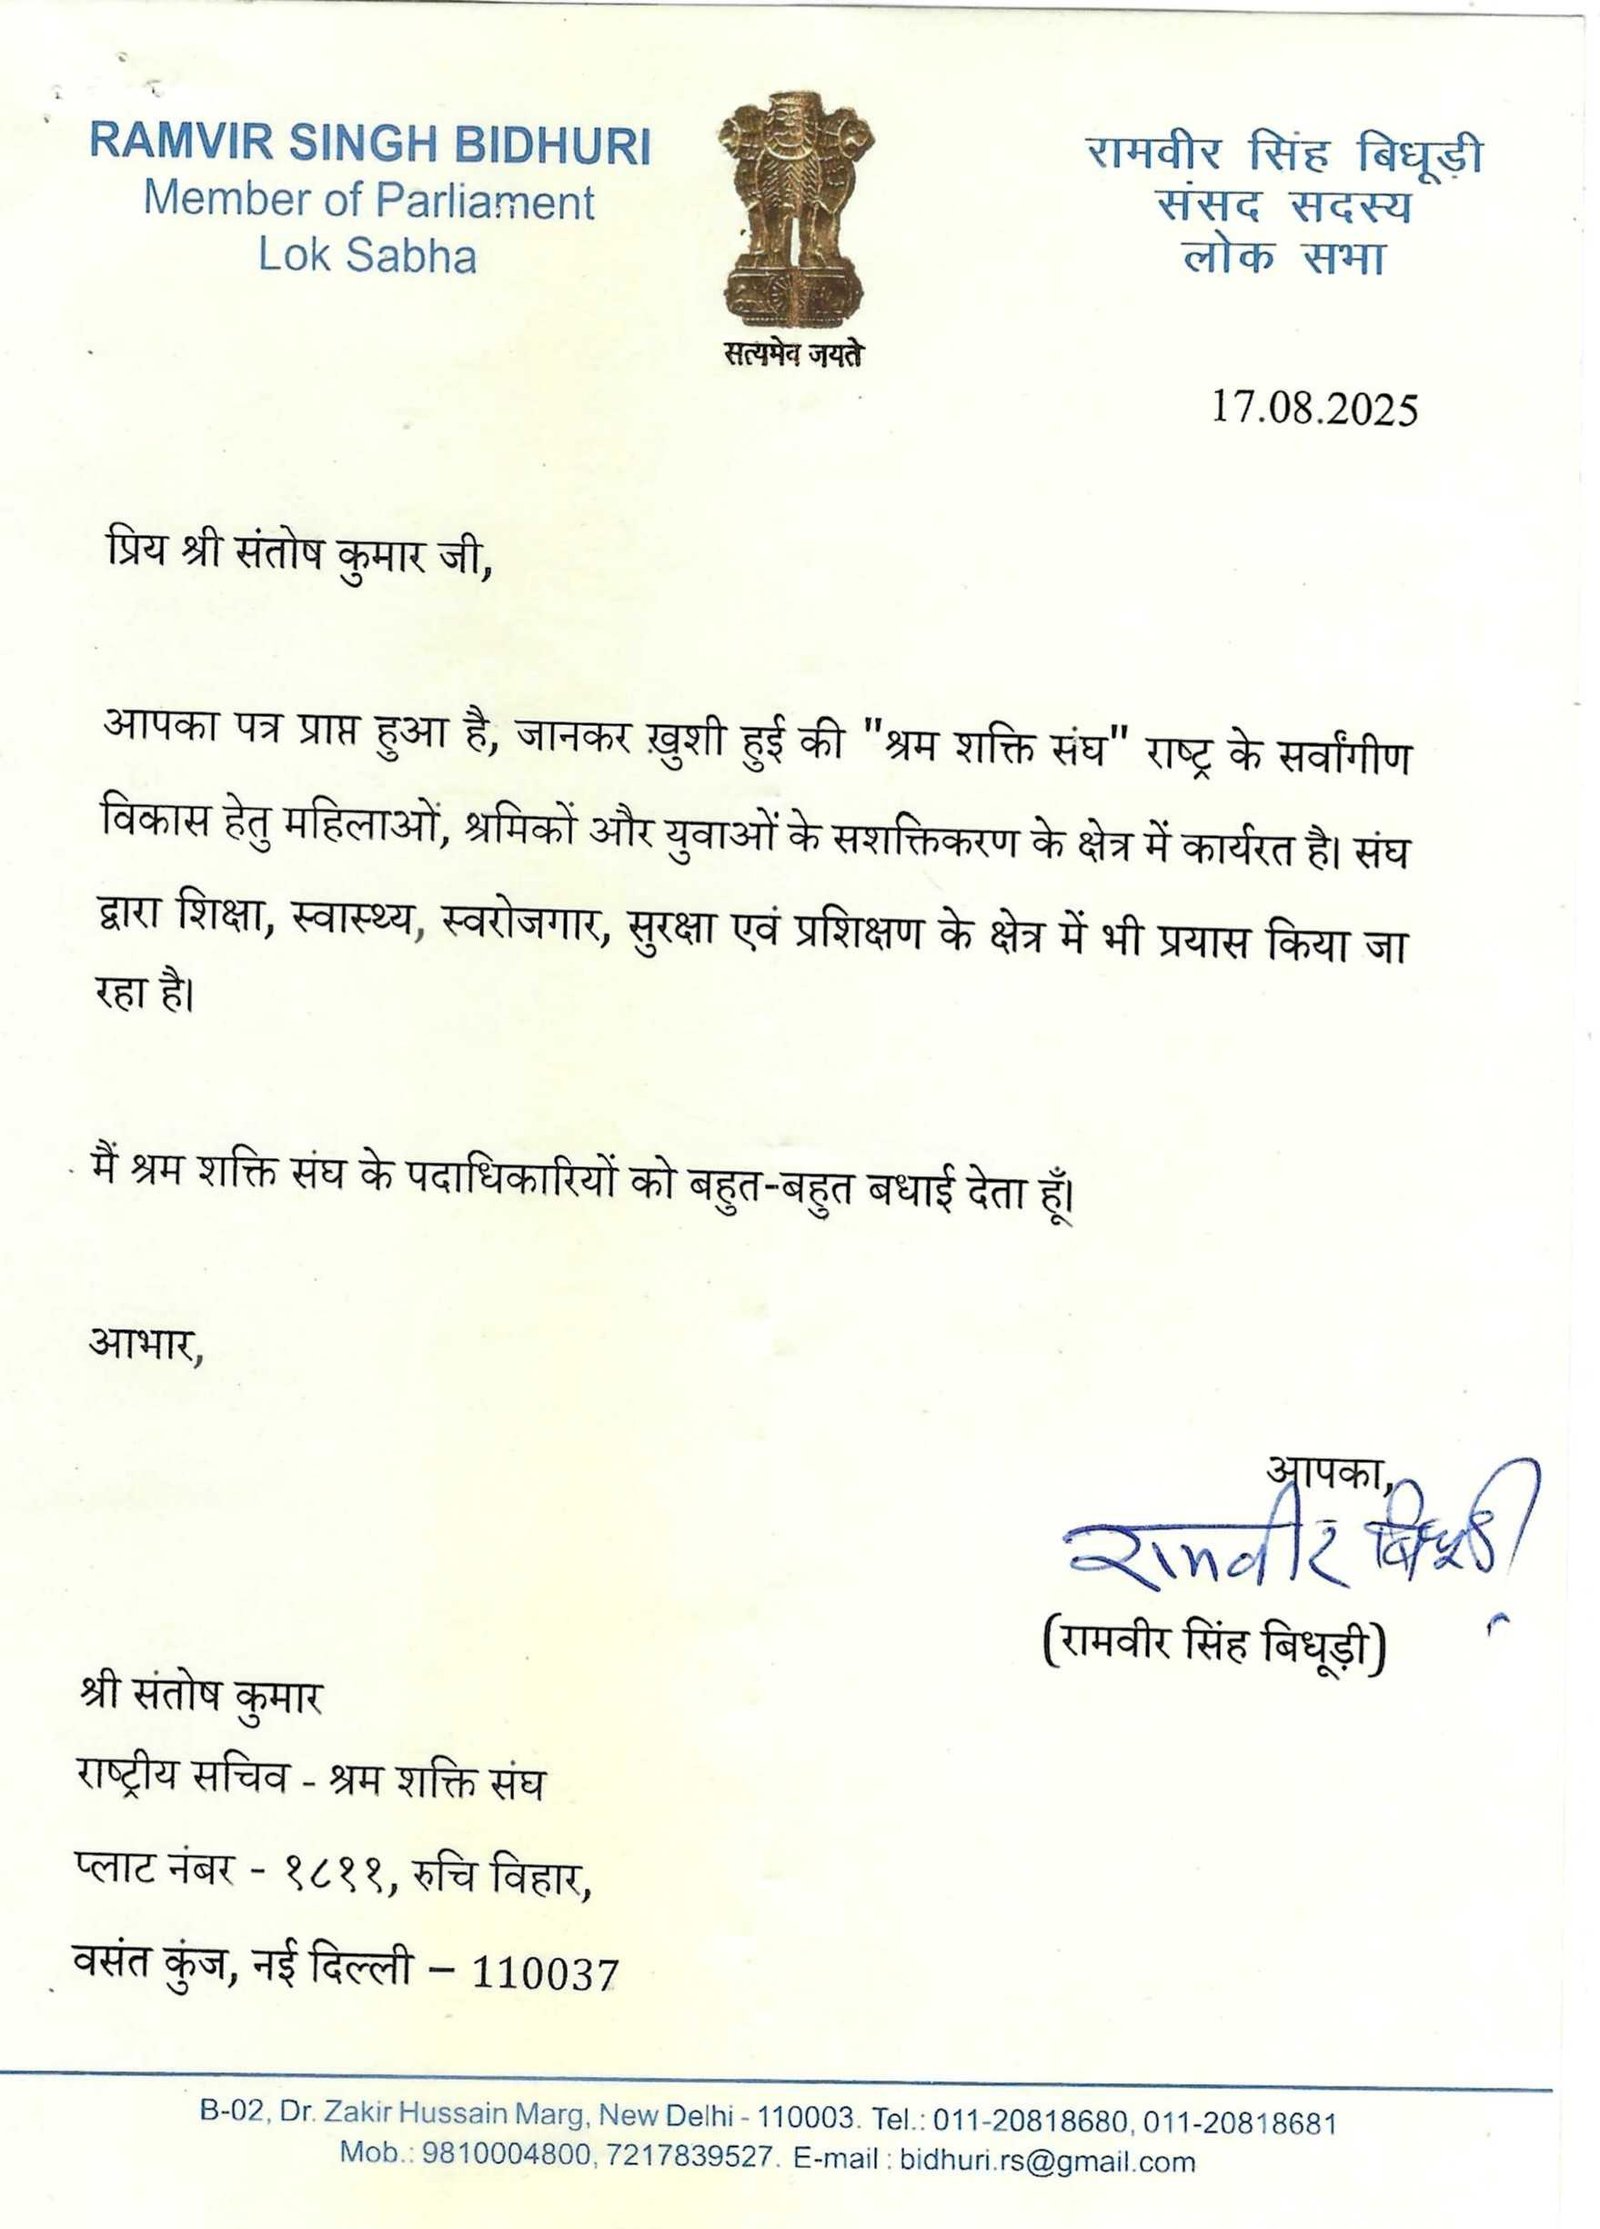 RAMVIR SINGH BIDHURI
Member of Parliament
Lok Sabha
सत्यमेव जयते
रामवीर सिंह बिधूड़ी
संसद सदस्य
लोक सभा
17.08.2025
प्रिय श्री संतोष कुमार जी,
आपका पत्र प्राप्त हुआ है, जानकर ख़ुशी हुई की "श्रम शक्ति संघ" राष्ट्र के सर्वांगीण
विकास हेतु महिलाओं, श्रमिकों और युवाओं के सशक्तिकरण के क्षेत्र में कार्यरत है। संघ
द्वारा शिक्षा, स्वास्थ्य, स्वरोजगार, सुरक्षा एवं प्रशिक्षण के क्षेत्र में भी प्रयास किया जा
रहा है।
मैं श्रम शक्ति संघ के पदाधिकारियों को बहुत-बहुत बधाई देता हूँ।
आभार,
आपका,
रामवीर बिधूड़ी
(रामवीर सिंह बिधूड़ी)
श्री संतोष कुमार
राष्ट्रीय सचिव - श्रम शक्ति संघ
प्लाट नंबर - १८११, रुचि विहार,
वसंत कुंज, नई दिल्ली – 110037
B-02, Dr. Zakir Hussain Marg, New Delhi - 110003. Tel.: 011-20818680, 011-20818681
Mob.: 9810004800, 7217839527. E-mail : bidhuri.rs@gmail.com